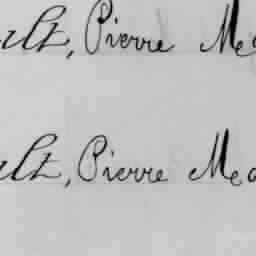 ult, Pierre Me
ult, Pierre Me